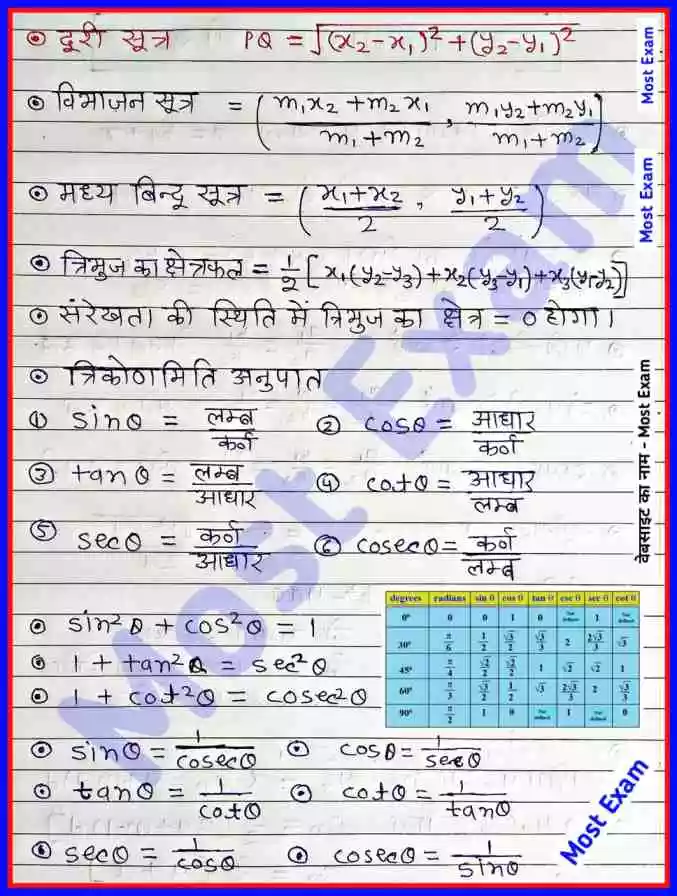 दूरी सूत्र PQ = √(x₂-x₁)² + (y₂-y₁)²
विभाजन सूत्र = (m₁x₂ + m₂x₁ / m₁ + m₂ , m₁y₂ + m₂y₁ / m₁ + m₂)
मध्य बिन्दू सूत्र = (x₁ + x₂ / 2 , y₁ + y₂ / 2)
त्रिभुज का क्षेत्रफल = 1/2 [x₁(y₂-y₃) + x₂(y₃-y₁) + x₃(y₁-y₂)]
संरेखता की स्थिति में त्रिभुज का क्षेत्र = 0 होगा।
त्रिकोणामिति अनुपात
① sinθ = लम्ब / कर्ण ② cosθ = आधार / कर्ण
③ tanθ = लम्ब / आधार ④ cotθ = आधार / लम्ब
⑤ secθ = कर्ण / आधार ⑥ cosecθ = कर्ण / लम्ब
sin²θ + cos²θ = 1
1 + tan²θ = sec²θ
1 + cot²θ = cosec²θ
degrees radians sin θ cos θ tan θ csc θ sec θ cot θ
0° 0 0 1 0 Not defined 1 Not defined
30° π/6 1/2 √3/2 √3/3 2 2√3/3 √3
45° π/4 √2/2 √2/2 1 √2 √2 1
60° π/3 √3/2 1/2 √3 2√3/3 2 √3/3
90° π/2 1 0 Not defined 1 Not defined 0
sinθ = 1/cosecθ cosθ = 1/secθ
tanθ = 1/cotθ cotθ = 1/tanθ
secθ = 1/cosθ cosecθ = 1/sinθ
Most Exam
Most Exam
वेबसाइट का नाम - Most Exam
Most Exam
Most Exam